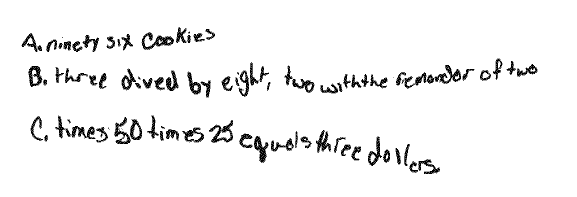 A. ninety six cookies
B. three dived by eight, two with the remondor of two
C. times 50 times 25 equals three dollers